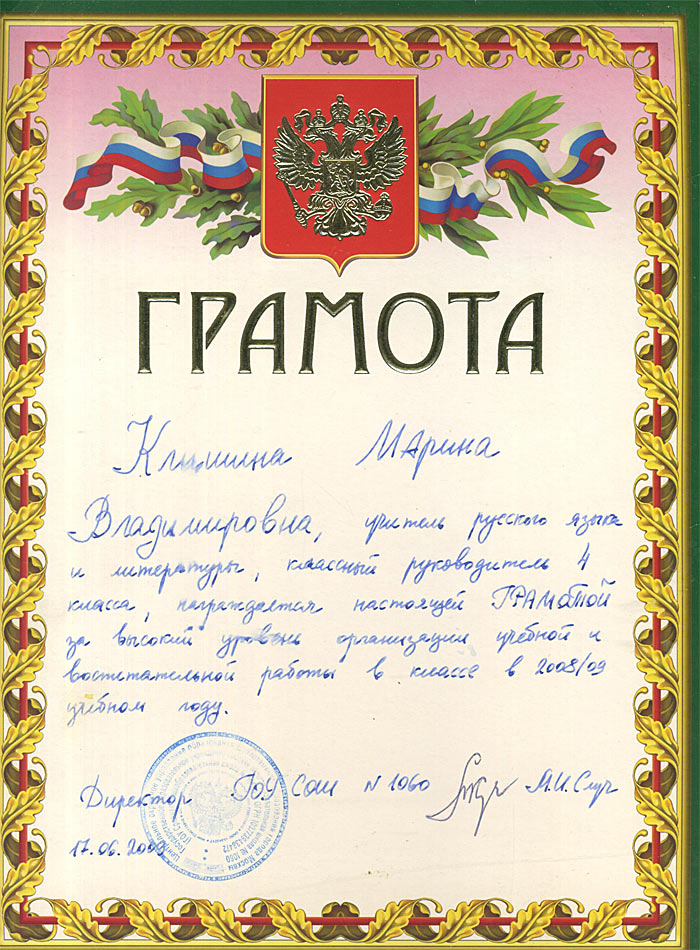 ГРАМОТА
Климина Марина
Владимировна, учитель русского языка
и литературы, классный руководитель 4
класса, награждается настоящей ГРАМОТОЙ
за высокий уровень организации учебной и
воспитательной работы в классе в 2008/09
учебном году.
Директор ГОУ СОШ N 1060
17.06.2009